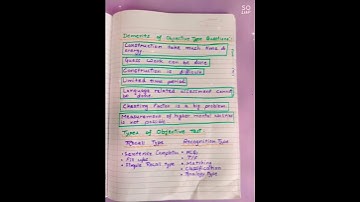 Demerits of Objective Type Questions:
Construction take much time &
energy.
Guess work can be done
Construction is difficult
Limited time period.
Language related assessment cannot
be done.
Cheating Factor is a big problem.
Measurement of higher mental abilities
is not possible
Types of Objective Test:
Recall Type Recognition Type
• Sentence Completion • MCQ
• Fill ups • T/F
• Simple Recall type • Matching
• Classification
• Analogy type